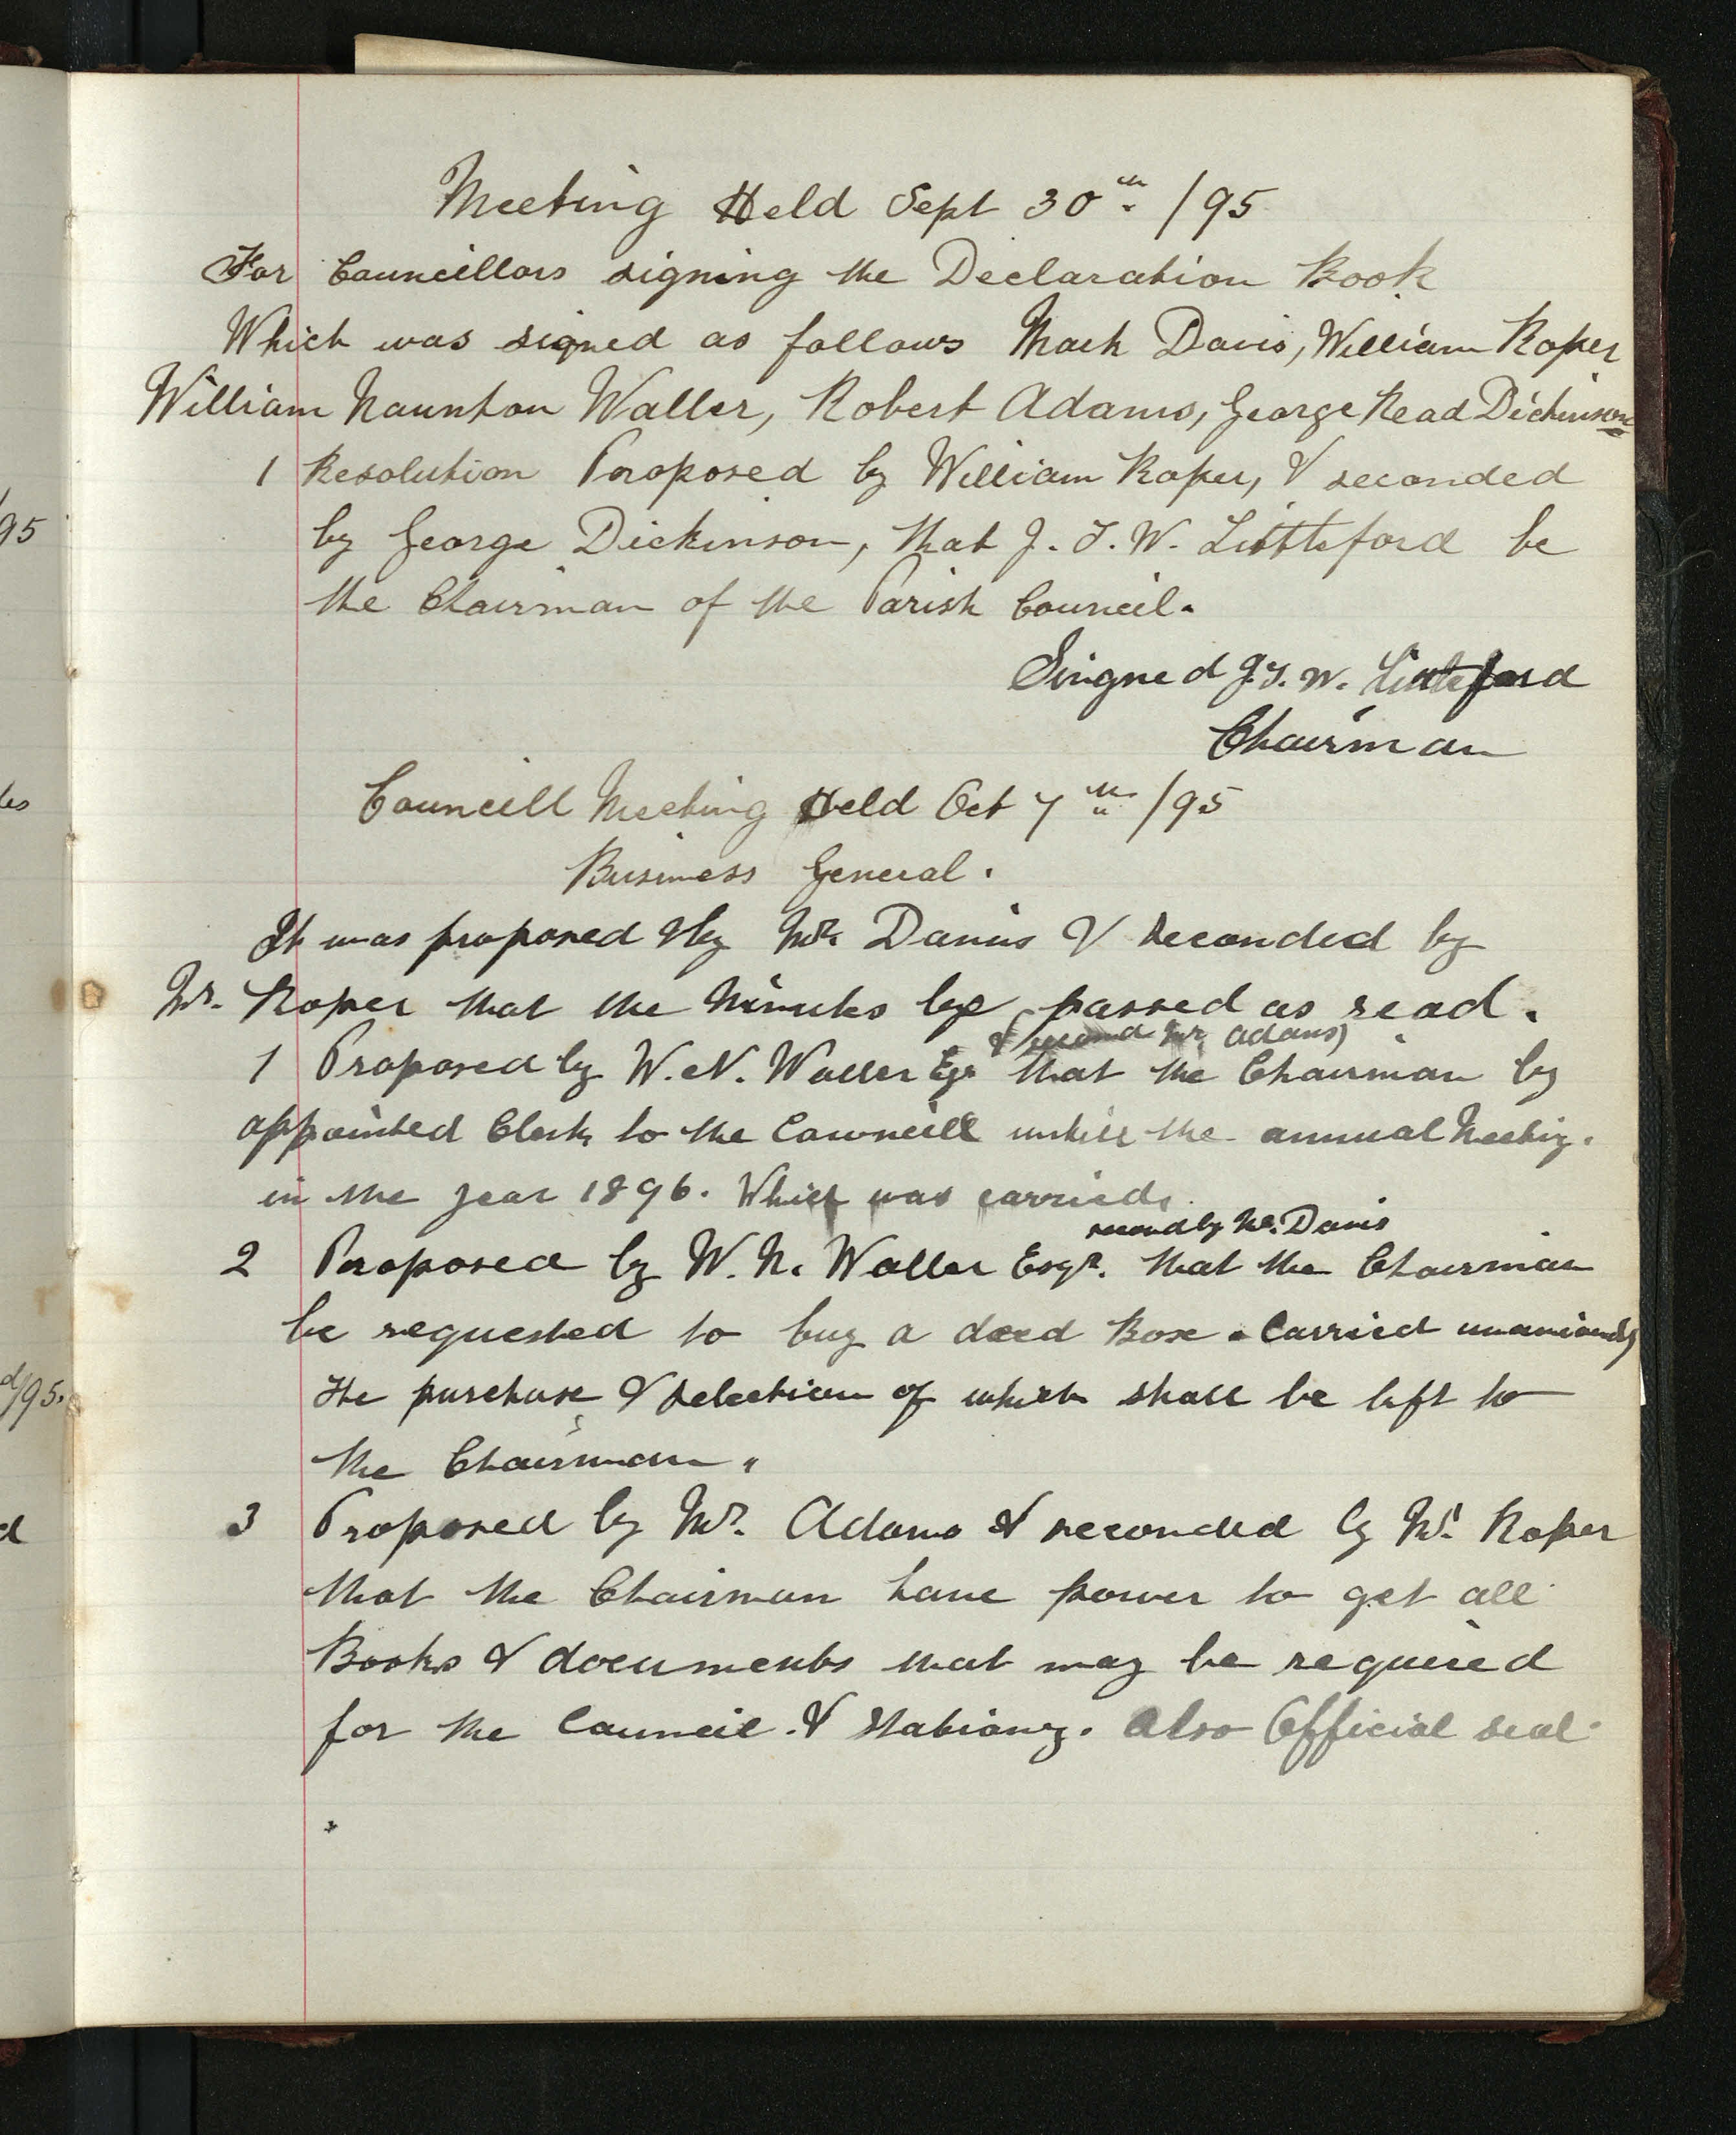 Meeting Held Sept 30th /95
For Councillors signing the Declaration Book
Which was signed as follows Mark Davis, William Roper
William Naunton Waller, Robert Adams, George Read Dickinson
1 Resolution Proposed by William Roper, & seconded
by George Dickinson, that J. T. W. Littleford be
the Chairman of the Parish Council.
Singned J. T. W. Littleford
Chairman
Councill Meeting Held Oct 7th /95
Business General.
It was proposed by Mr Davis & seconded by
Mr. Roper that the Minutes be passed as read.
& second Mr Adams
1 Proposed by W. N. Waller Eqr that the Chairman by
appointed Clerk to the Councill untill the annual Meeting.
in the year 1896. Which was carried.
second by Mr. Davis
2 Proposed by W. N. Waller Esqr. that the Chairman
be requested to buy a deed Box. Carried unanimously
the purchase & selection of which shall be left to
the Chairman "
3 Proposed by Mr. Adams & seconded by Mr. Roper
that the Chairman have power to get all
Books & documents that may be required
for the Council. & Stationy. Also Official seal.
95
tes
d/95.
d